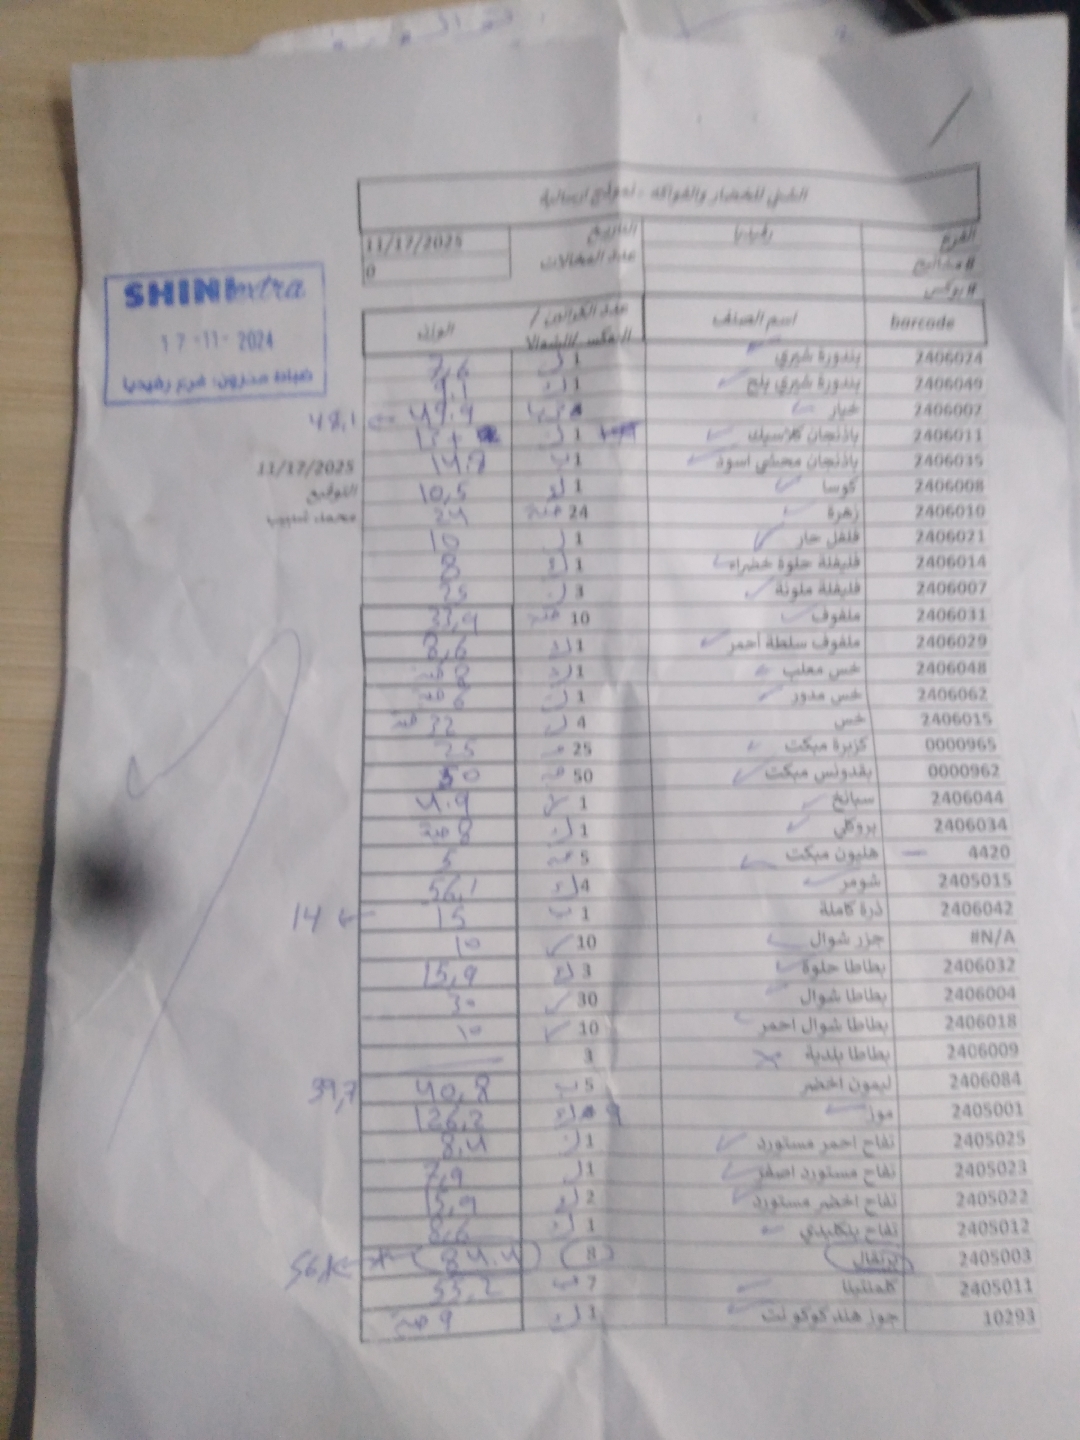 الشني للخضار والفواكه : نموذج ارسالية
الفرع رفيديا التاريخ 11/17/2025
# مشاتيح عدد المحالات 0
# بوكس
barcode اسم الصنف عدد الكراتين / البكس /الشوالا الوزن
SHINI extra
17-11-2024
2406024 بندورة شيري 1 ك 7,6
2406049 بندورة شيري بلح 1 ك 9.1
2406002 خيار 49.9 48,1
2406011 باذنجان كلاسيك 1 ك
2406035 باذنجان محشي اسود 1 ب 14.8
11/17/2025
2406008 كوسا 1 ك 10,5
التوقيع
2406010 زهرة 24 حبة 24
محمد
2406021 فلفل حار 1 ك 10
2406014 فليفلة حلوة خضراء 1 ك 8
2406007 فليفلة ملونة 3 ك 25
2406031 ملفوف 10 حبة 33,9
2406029 ملفوف سلطة أحمر 1 ك 8,6
2406048 خس معلب 1 ك 8 حبة
2406062 خس مدور 1 ك 6 حبة
2406015 خس 4 ك 32 حبة
0000965 كزبرة مبكت 25 25
0000962 بقدونس مبكت 50 حبة 50
2406044 سبانخ 1 ك 4.9
2406034 بروكلي 1 ك 8 حبة
4420 هليون مبكت 5 حبة 5
2405015 شومر 4 ك 56,1
2406042 ذرة كاملة 1 ب 15 14
#N/A جزر شوال 10 10
2406032 بطاطا حلوة 3 ك 15,9
2406004 بطاطا شوال 30 30
2406018 بطاطا شوال احمر 10 10
2406009 بطاطا بلدية 3
2406084 ليمون اخضر 5 ب 40,8 39,7
2405001 موز 9 ك 126,2
2405025 تفاح احمر مستورد 1 ك 8,4
2405023 تفاح مستورد اصفر 1 ك 7,9
2405022 تفاح اخضر مستورد 2 ك 15,9
2405012 تفاح بنكليدي 1 ك 8,6
2405003 برتقال (8) (84.4)
2405011 كلمنتينا 7 ب 55,2
10293 جوز هند كوكو نت 1 ك 9 حبة